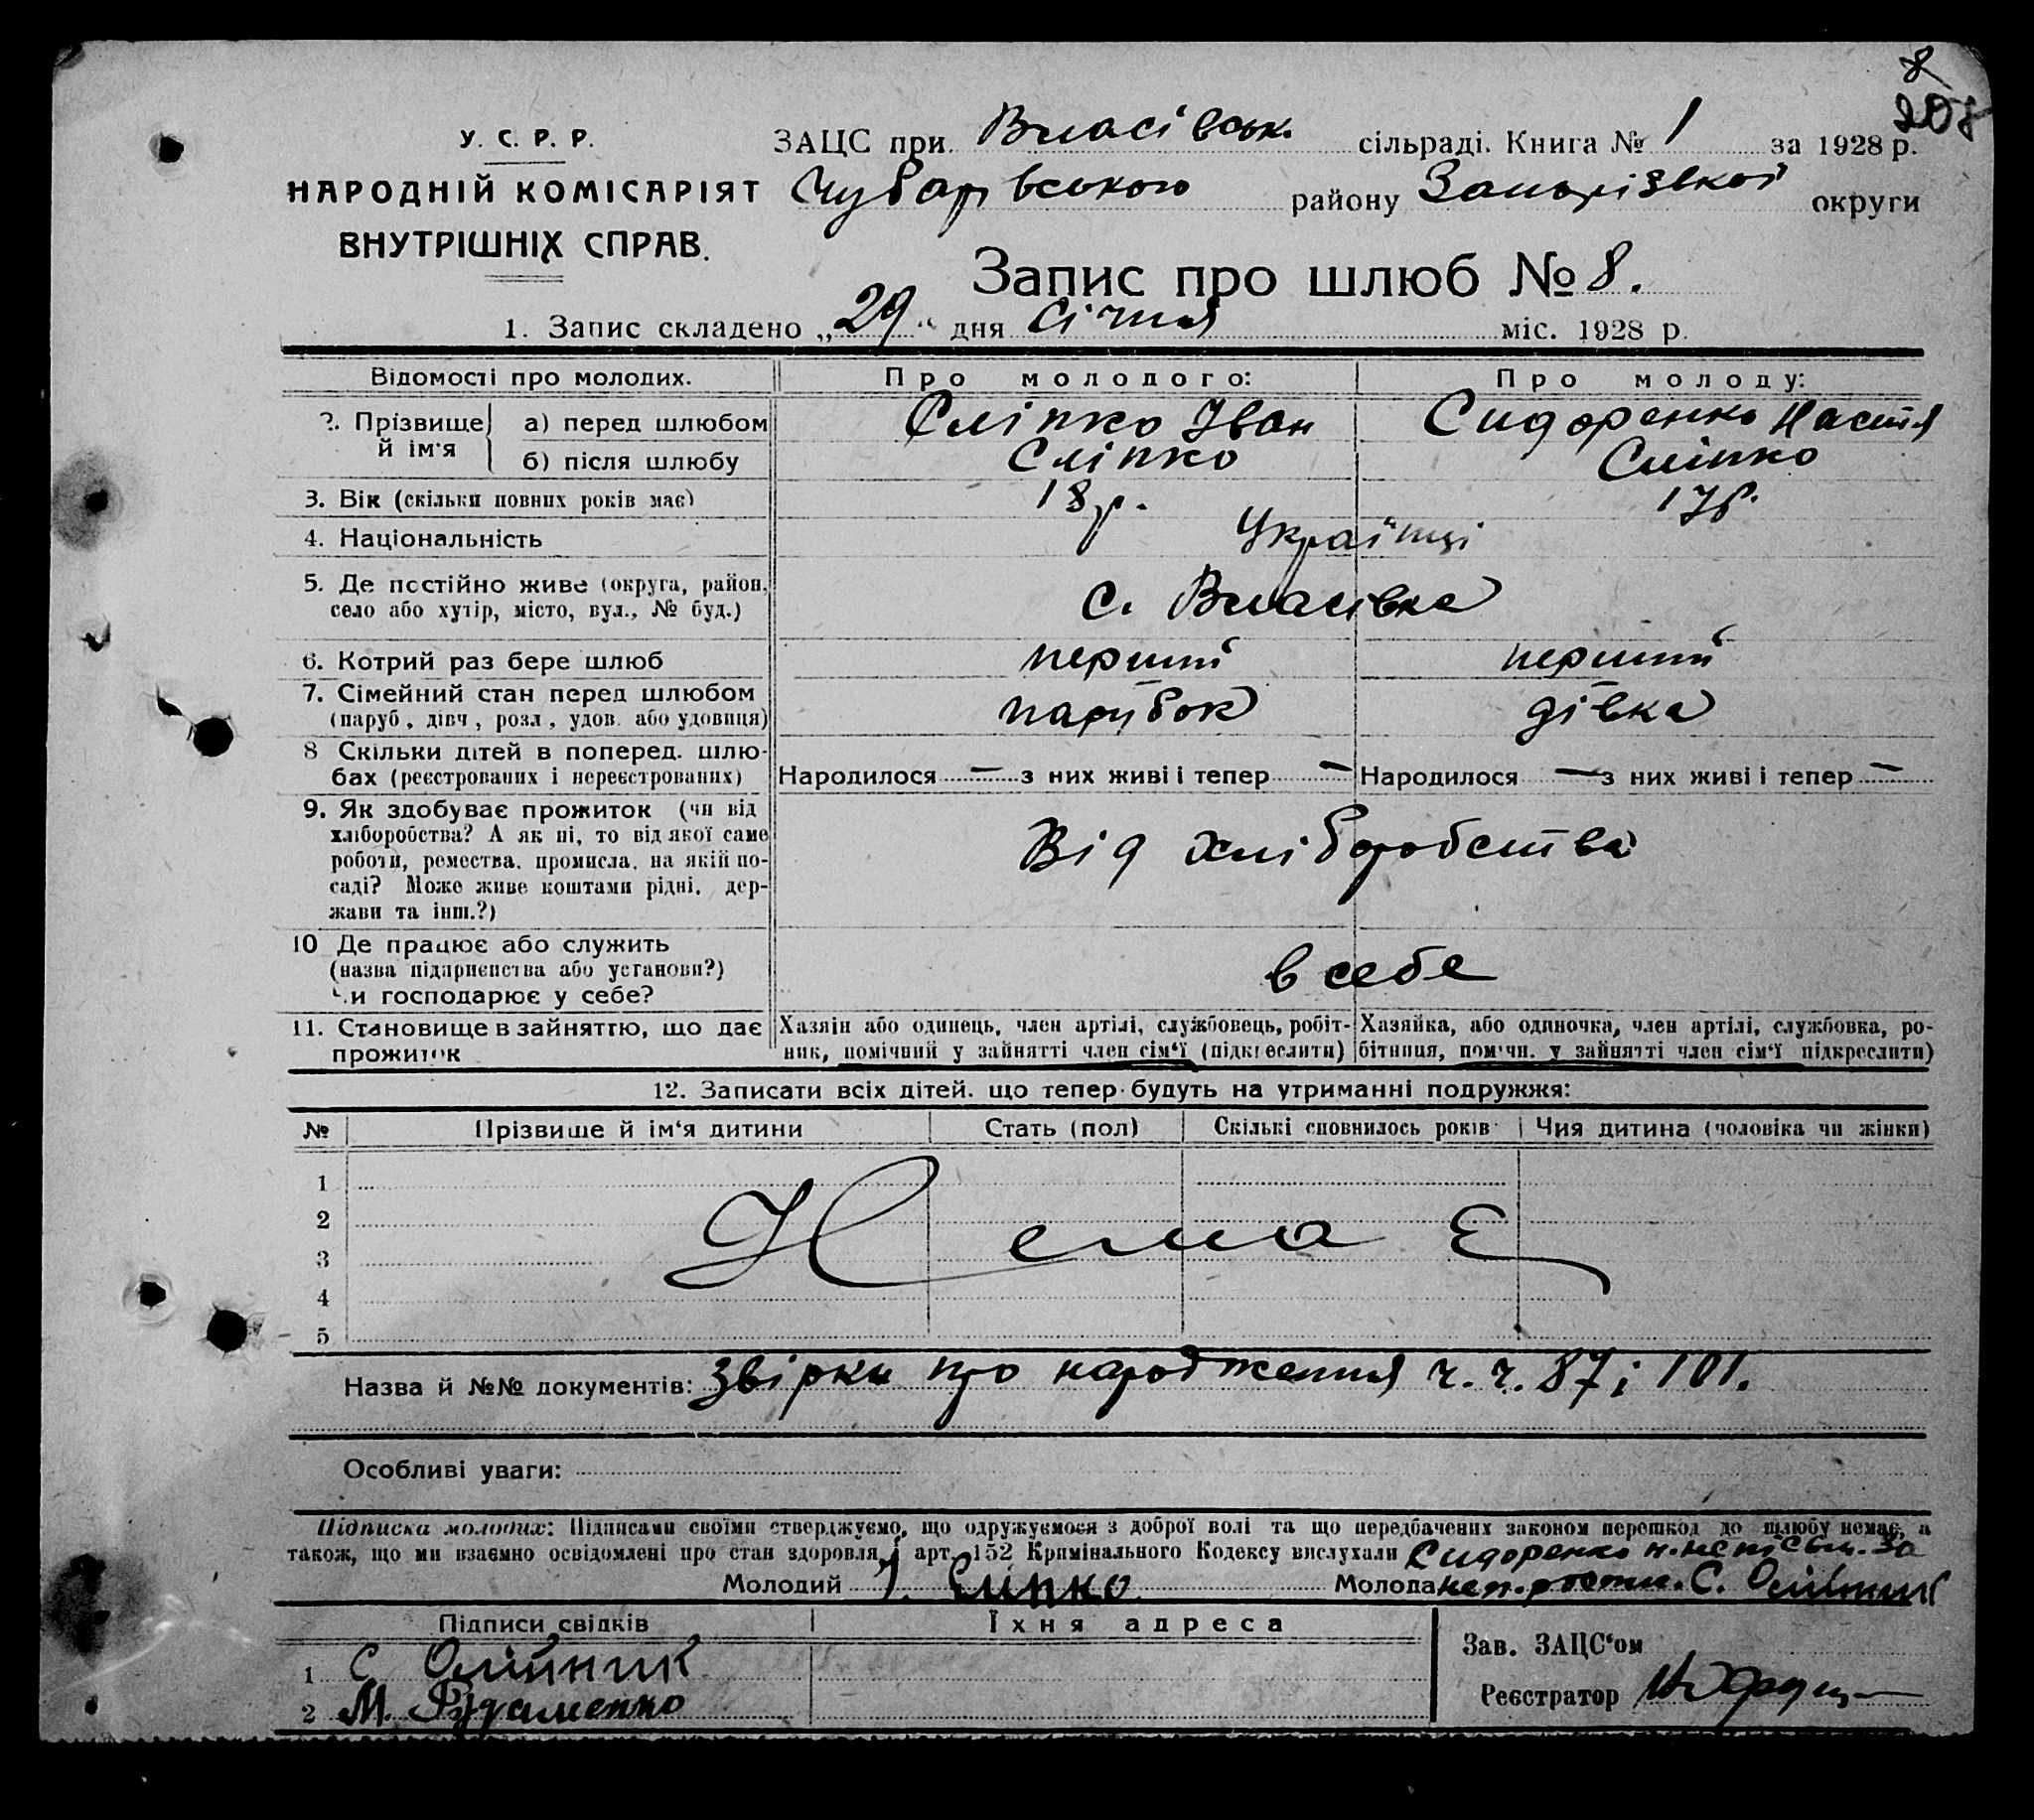 8
208
У. С. Р. Р.
НАРОДНІЙ КОМІСАРІЯТ
ВНУТРІШНІХ СПРАВ.
ЗАЦС при Власівськ. сільраді. Книга № 1 за 1928 р.
Чубарівського району Запорізької округи
Запис про шлюб № 8.
1. Запис складено „29“ дня січня міс. 1928 р.
Відомості про молодих. Про молодого: Про молоду:
2. Прізвище й ім'я а) перед шлюбом Сліпко Іван Сидоренко Настя
б) після шлюбу Сліпко Сліпко
3. Вік (скільки повних років має) 18 р. 17 р.
4. Національність Українці
5. Де постійно живе (округа, район,
село або хутір, місто, вул., № буд.) с. Власівка
6. Котрий раз бере шлюб перший перший
7. Сімейний стан перед шлюбом
(паруб., дівч., розл., удов. або удовиця) парубок дівка
8 Скільки дітей в поперед. шлю-
бах (реєстрованих і нереєстрованих) Народилося — з них живі і тепер — Народилося — з них живі і тепер —
9. Як здобуває прожиток (чи від
хліборобства? А як ні, то від якої саме
роботи, ремества, промисла, на якій по-
саді? Може живе коштами рідні, дер-
жави та інш.?)
Від хліборобства
10 Де працює або служить
(назва підприємства або установи?)
Чи господарює у себе?
в себе
11. Становище в зайняттю, що дає
прожиток
Хазяїн або одинець, член артілі, службовець, робіт-
ник, помічний у зайнятті член сім'ї (підкреслити)
Хазяйка, або одиночка, член артілі, службовка, ро-
бітниця, помічн. у зайнятті член сім'ї підкреслити)
12. Записати всіх дітей. що тепер будуть на утриманні подружжя:
№ Прізвище й ім'я дитини Стать (пол) Скількі сповнилось років Чия дитина (чоловіка чи жінки)
1
2
3
4
5
Немає
Назва й №№ документів: звірки про народження ч.ч. 87 і 101.
Особливі уваги:
Підписка молодих: Підписами своїми стверджуємо, що одружуємося з доброї волі та що передбачених законом перешкод до шлюбу немає, а
також, що ми взаємно освідомлені про стан здоровля і арт. 152 Кримінального Кодексу вислухали Сидоренко н. неписьм. за
Молодий І. Сліпко Молода С. Олійник
Підписи свідків Їхня адреса
1 С. Олійник
2 М.
Зав. ЗАЦС'ом
Реєстратор